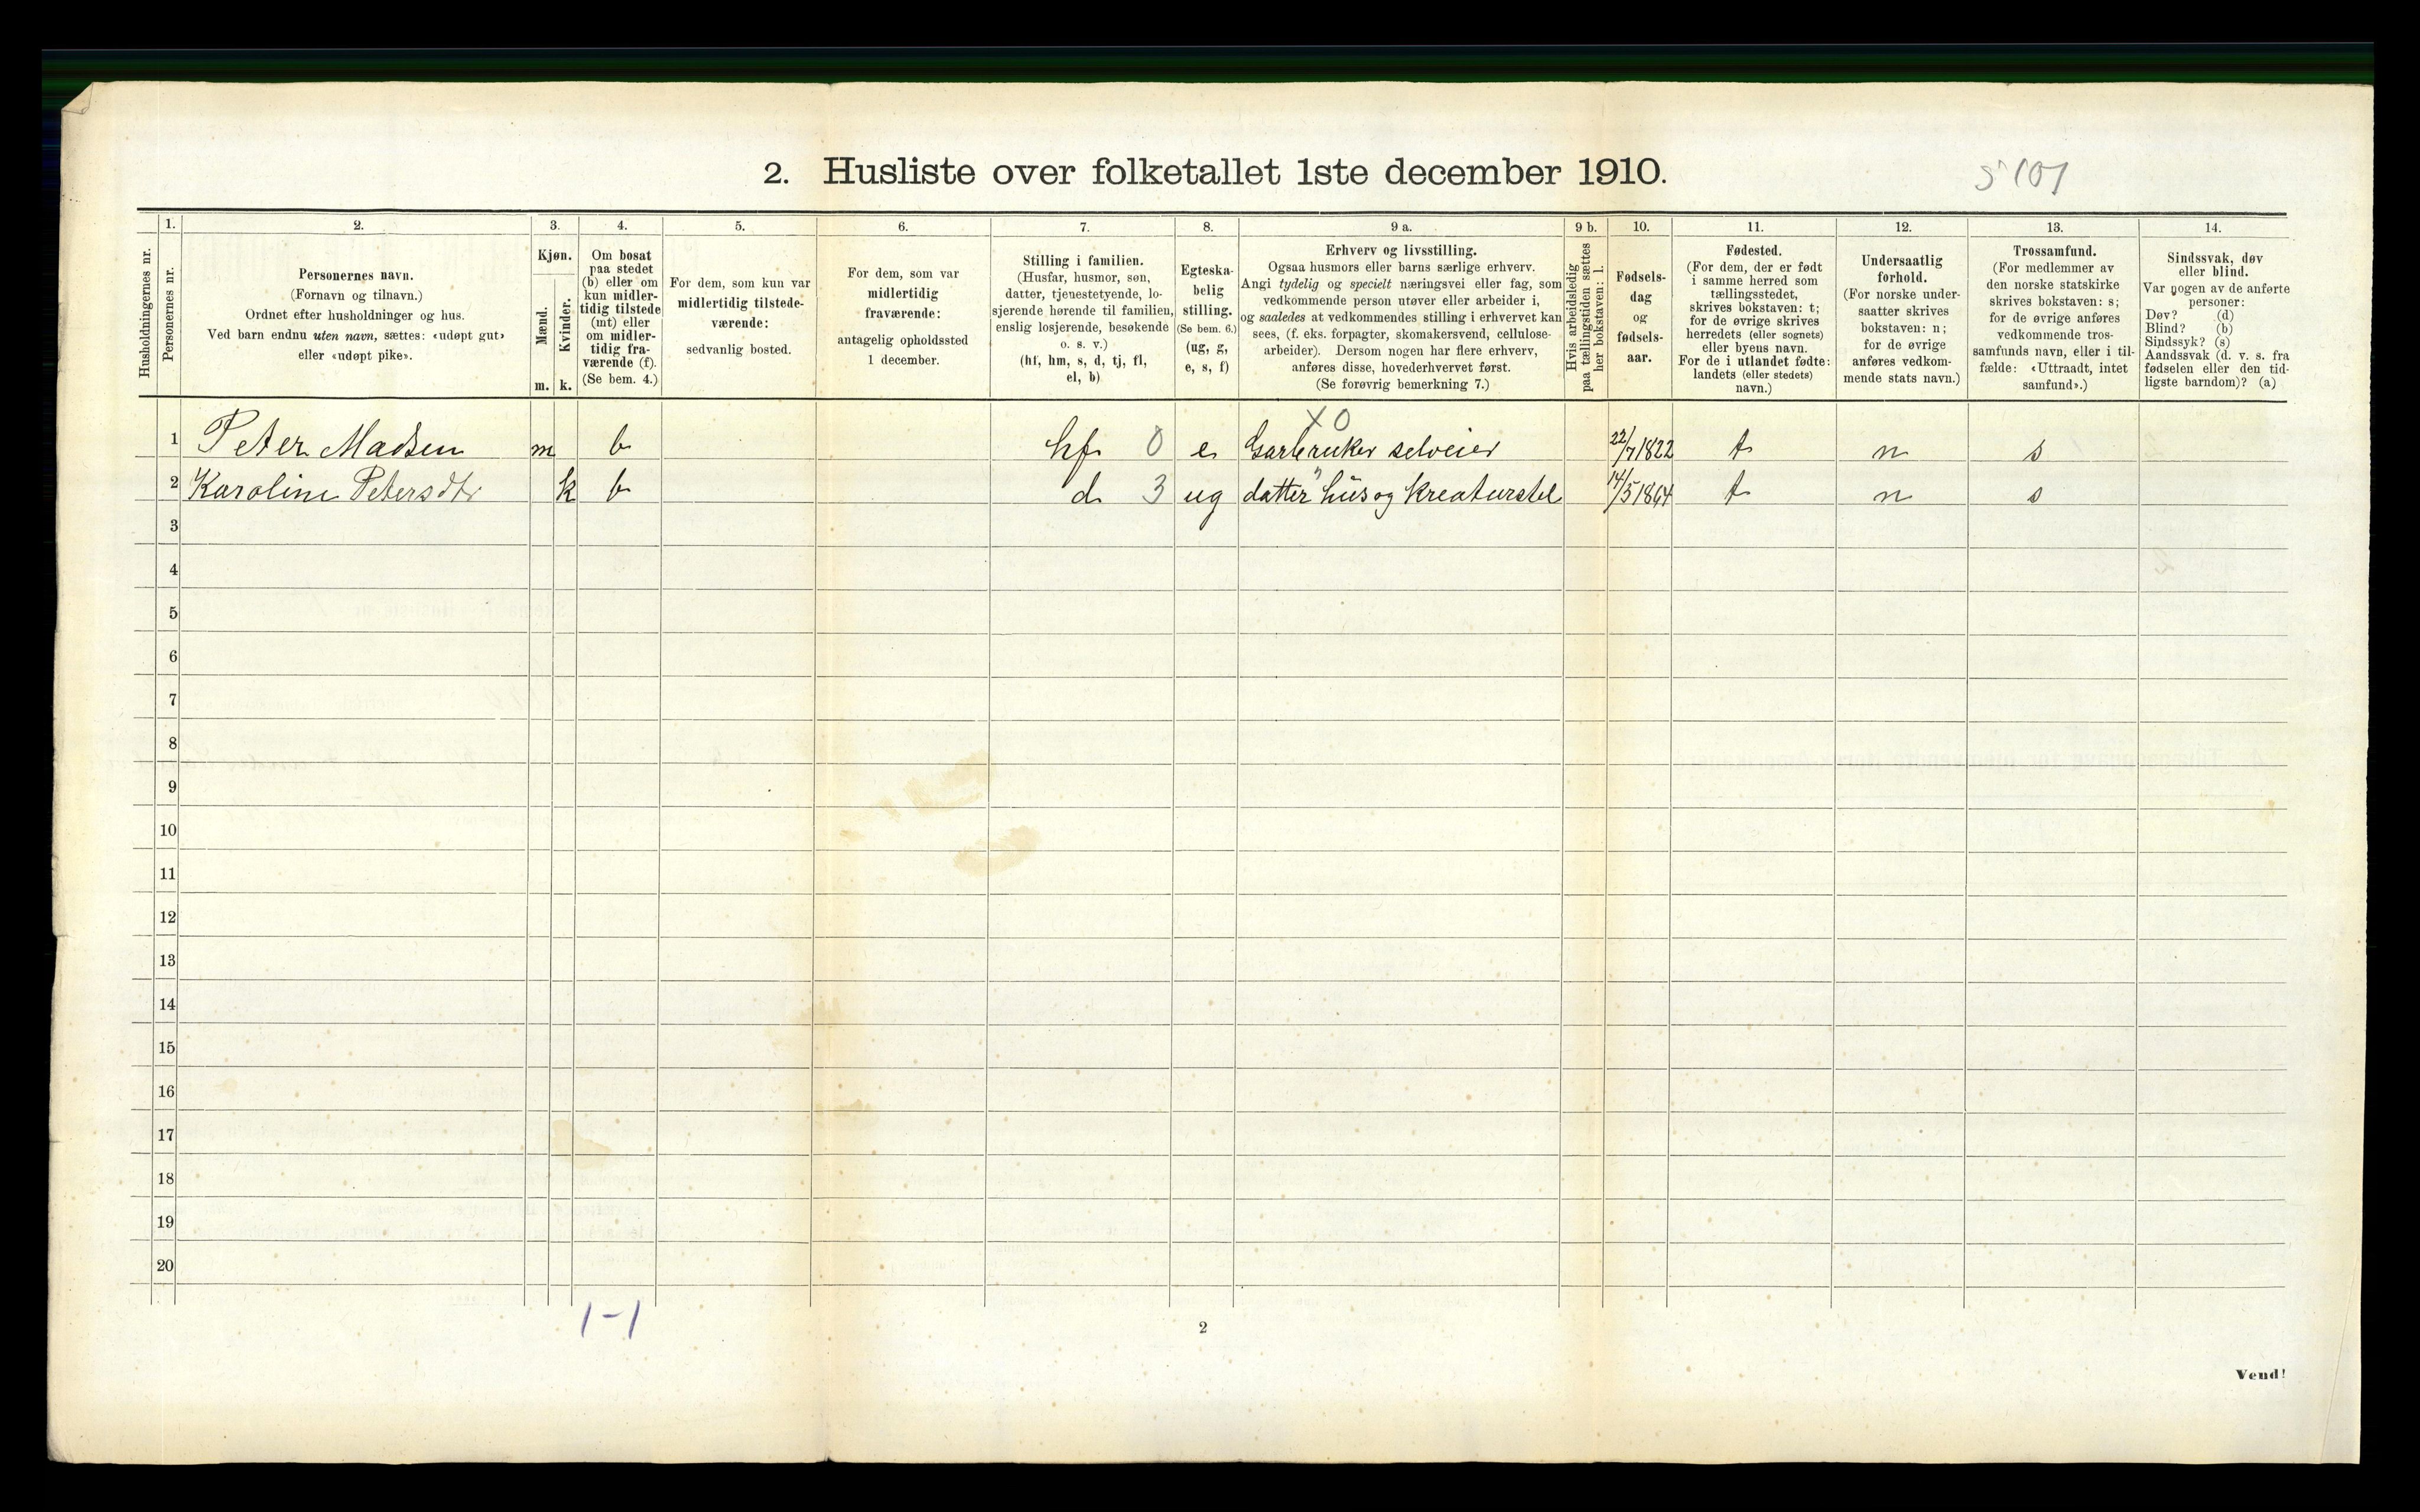 2. Husliste over folketallet 1ste december 1910.
Husholdningernes nr.
1.
Personernes nr.
2.
Personernes navn.
(Fornavn og tilnavn.)
Ordnet efter husholdninger og hus.
Ved barn endnu uten navn, sættes: «udøpt gut»
eller «udøpt pike».
3.
Kjøn.
Mænd.
m.
Kvinder.
k.
4.
Om bosat
paa stedet
(b) eller om
kun midler-
tidig tilstede
(mt) eller
om midler-
tidig fra-
værende (f).
(Se bem. 4.)
5.
For dem, som kun var
midlertidig tilstede-
værende:
sedvanlig bosted.
6.
For dem, som var
midlertidig
fraværende:
antagelig opholdssted
1 december.
7.
Stilling i familien.
(Husfar, husmor, søn,
datter, tjenestetyende, lo-
sjerende hørende til familien,
enslig losjerende, besøkende
o. s. v.)
(hf, hm, s, d, tj, fl,
el, b)
8.
Egteska-
belig
stilling.
(Se bem. 6.)
(ug, g,
e, s, f)
9 a.
Erhverv og livsstilling.
Ogsaa husmors eller barns særlige erhverv.
Angi tydelig og specielt næringsvei eller fag, som
vedkommende person utøver eller arbeider i,
og saaledes at vedkommendes stilling i erhvervet kan
sees, (f. eks. forpagter, skomakersvend, cellulose-
arbeider). Dersom nogen har flere erhverv,
anføres disse, hovederhvervet først.
(Se forøvrig bemerkning 7.)
9 b.
Hvis arbeidsledig
paa tællingstiden sættes
her bokstaven: l.
10.
Fødsels-
dag
og
fødsels-
aar.
11.
Fødested.
(For dem, der er født
i samme herred som
tællingsstedet,
skrives bokstaven: t;
for de øvrige skrives
herredets (eller sognets)
eller byens navn.
For de i utlandet fødte:
landets (eller stedets)
navn.)
12.
Undersaatlig
forhold.
(For norske under-
saatter skrives
bokstaven: n;
for de øvrige
anføres vedkom-
mende stats navn.)
13.
Trossamfund.
(For medlemmer av
den norske statskirke
skrives bokstaven: s;
for de øvrige anføres
vedkommende tros-
samfunds navn, eller i til-
fælde: «Uttraadt, intet
samfund».)
14.
Sindssvak, døv
eller blind.
Var nogen av de anførte
personer:
Døv? (d)
Blind? (b)
Sindssyk? (s)
Aandssvak (d. v. s. fra
fødselen eller den tid-
ligste barndom)? (a)
X 0
1 Peter Madsen m b hf 0 e Garbruker selveier 22/7 1822 t n s
2 Karoline Petersdtr k b d 3 ug datter hus og kreaturstel 14/5 1864 t n s
3
4
5
6
7
8
9
10
11
12
13
14
15
16
17
18
19
20
1-1
2
Vend!